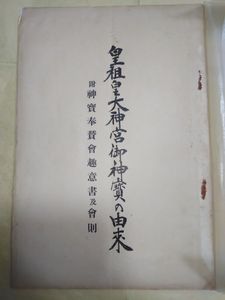 皇祖皇大神宮御神寶の由来
附 神寶奉賛會趣意書及會則